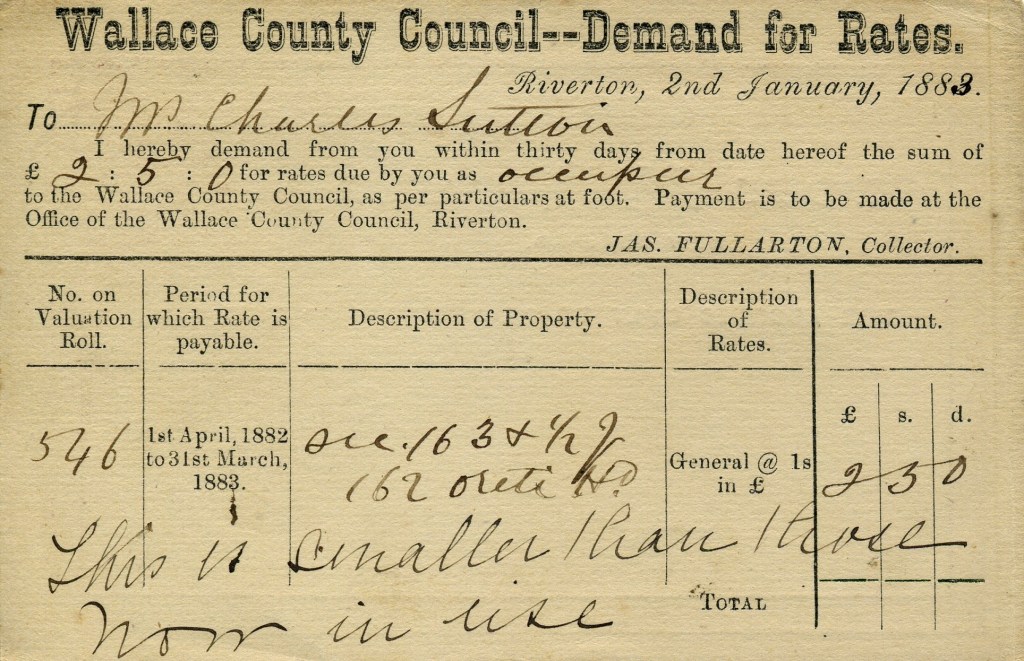 Wallace County Council--Demand for Rates.
Riverton, 2nd January, 1883.
To Mr Charles Sutton
I hereby demand from you within thirty days from date hereof the sum of
£ 2 : 5 : 0 for rates due by you as occupier
to the Wallace County Council, as per particulars at foot. Payment is to be made at the
Office of the Wallace County Council, Riverton.
JAS. FULLARTON, Collector.
No. on Valuation Roll.
Period for which Rate is payable.
Description of Property.
Description of Rates.
Amount.
£ s. d.
546
1st April, 1882
to 31st March,
1883.
sec. 163 & 1/2 of
162 Oreti HD
General @ 1s
in £
2 5 0
This is smaller than those
Now in use
TOTAL